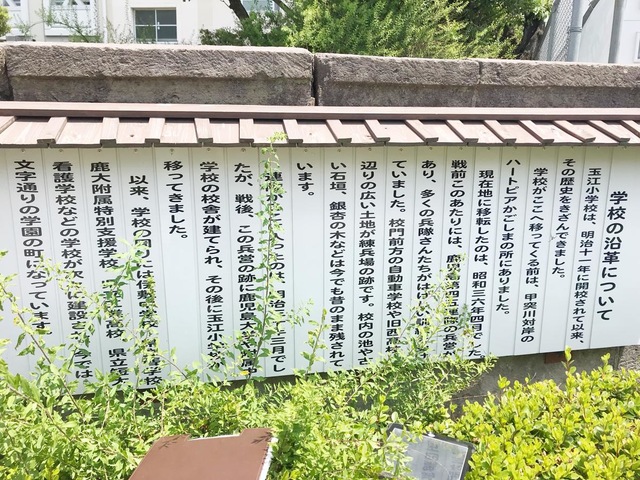 学校の沿革について
玉江小学校は、明治十一年に開校されて以来、
その歴史をきざんできました。
学校がここへ移ってくる前は、甲突川対岸の
ハートピアかごしまの所にありました。
現在地に移転したのは、昭和三六年四月でした
戦前このあたりには、鹿児島第四五連隊の兵営
あり、多くの兵隊さんたちがはげ
ていました。校門前方の自動車学校や旧
辺りの広い土地が練兵場の跡です。校内の池や古
い石垣、銀杏の木などは今でも昔のまま残されて
います。
三月でし
たが、戦後、この兵営の跡に鹿児島大
学校の校舎が建てられ、その後に玉江小
移ってきました。
以来、学校の周りには伊敷 学校
鹿大附属特別支援学校、 高校、県立短大
看護学校などの学校が次 建設さ では
文字通りの学園の町になっています。